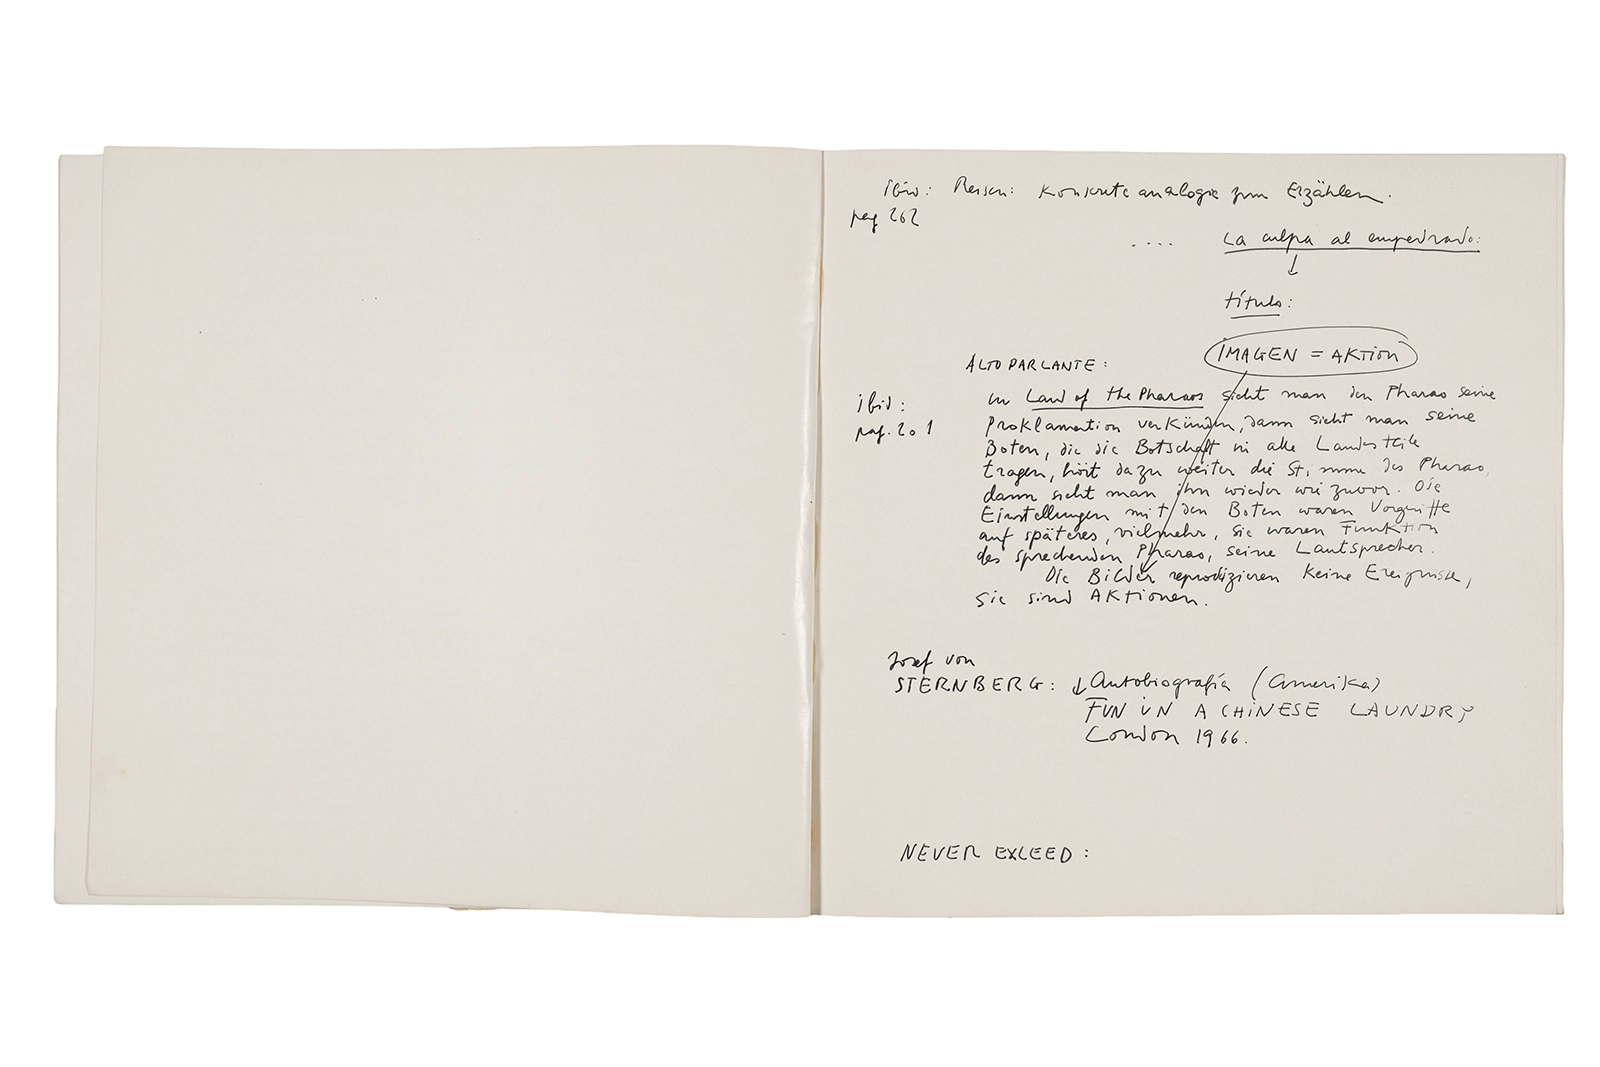 ibid: Reisen: Konkrete analogie zum Erzählen.
pag 262
.... La culpa al empedrado:
título:
IMAGEN = AKTION
ALTOPARLANTE:
ibid:
pag. 201
in Land of the Pharaos sieht man den Pharao seine
Proklamation verkünden, dann sieht man seine
Boten, die die Botschaft in alle Landesteile
tragen, hört dazu weiter die Stimme des Pharao,
dann sieht man ihn wieder wie zuvor. Die
Einstellungen mit den Boten waren Vorgriffe
auf späteres, vielmehr, sie waren Funktion
des sprechenden Pharao, seine Lautsprecher.
Die Bilder reproduzieren keine Ereignisse,
sie sind AKTIONEN.
Josef von
STERNBERG: ↓ Autobiografía (Amerika)
FUN IN A CHINESE LAUNDRY
London 1966.
NEVER EXLEED: